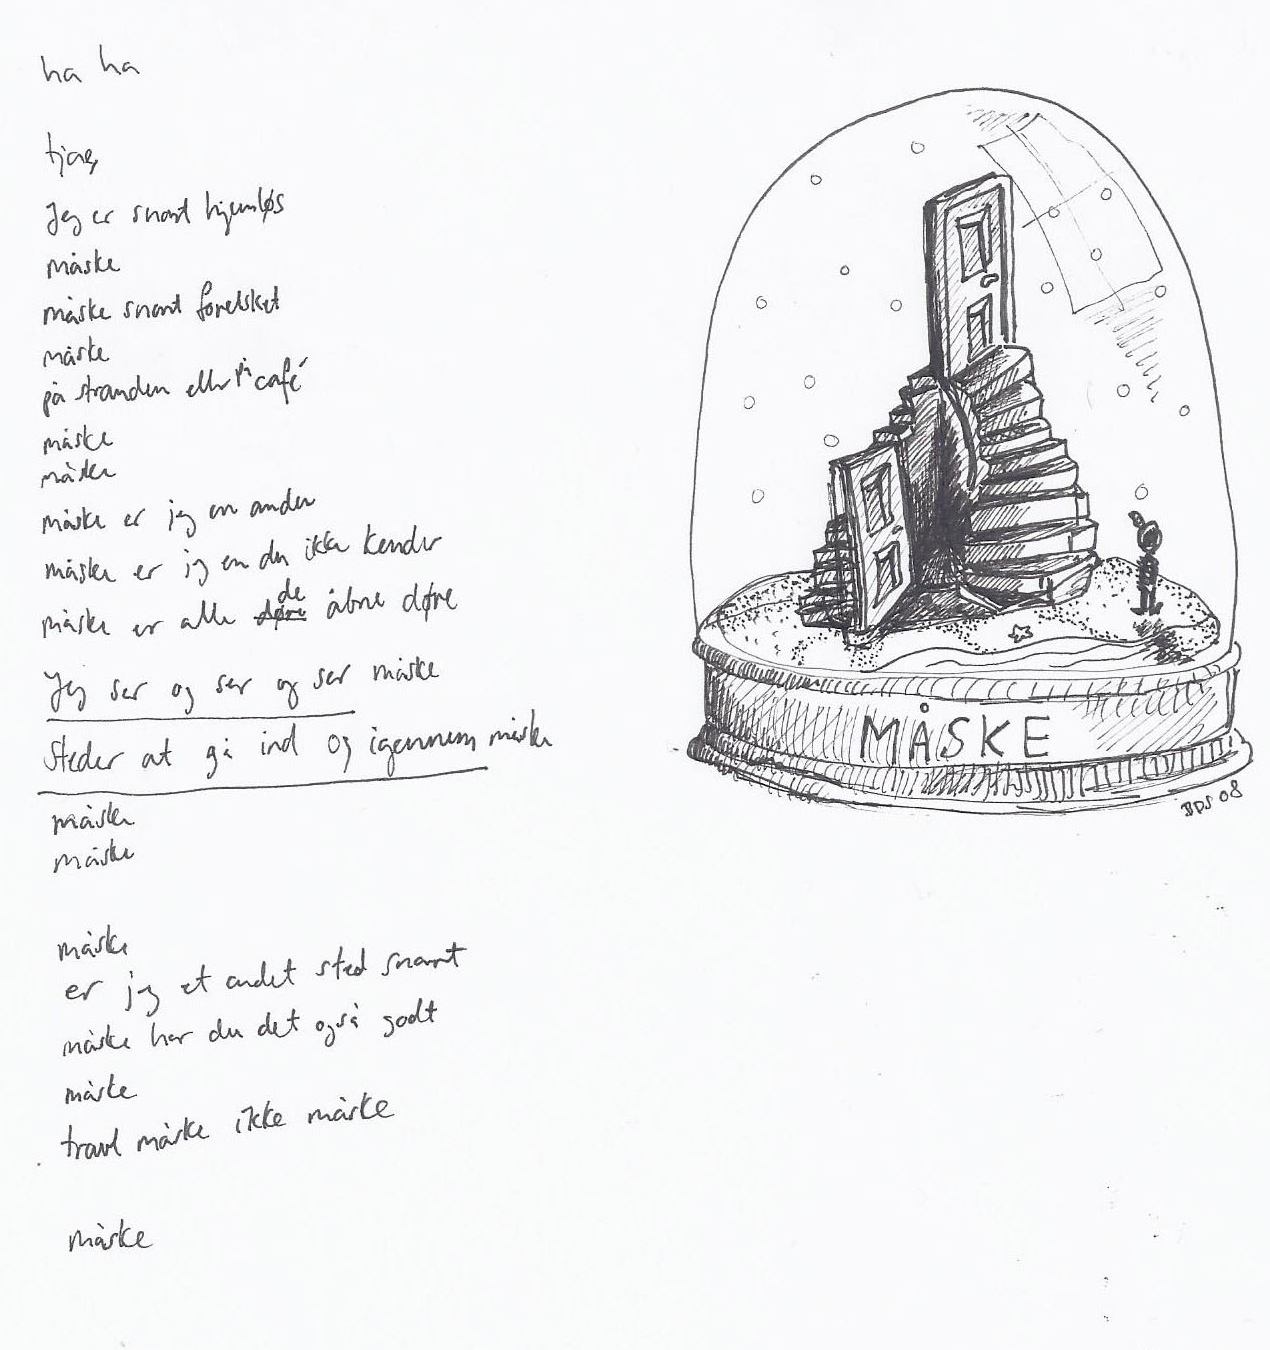 ha ha
tjae,
Jeg er snart hjemløs
måske
måske snart forelsket
måske
på stranden eller på café
måske
måske
måske er jeg en anden
måske er jeg en du ikke kender
måske er alle døre de åbne døre
Jeg ser og ser og ser måske
Steder at gå ind og igennem måske
måske
måske
måske
er jeg et andet sted snart
måske har du det også godt
måske
travl måske ikke måske
måske
MÅSKE
BDS 08